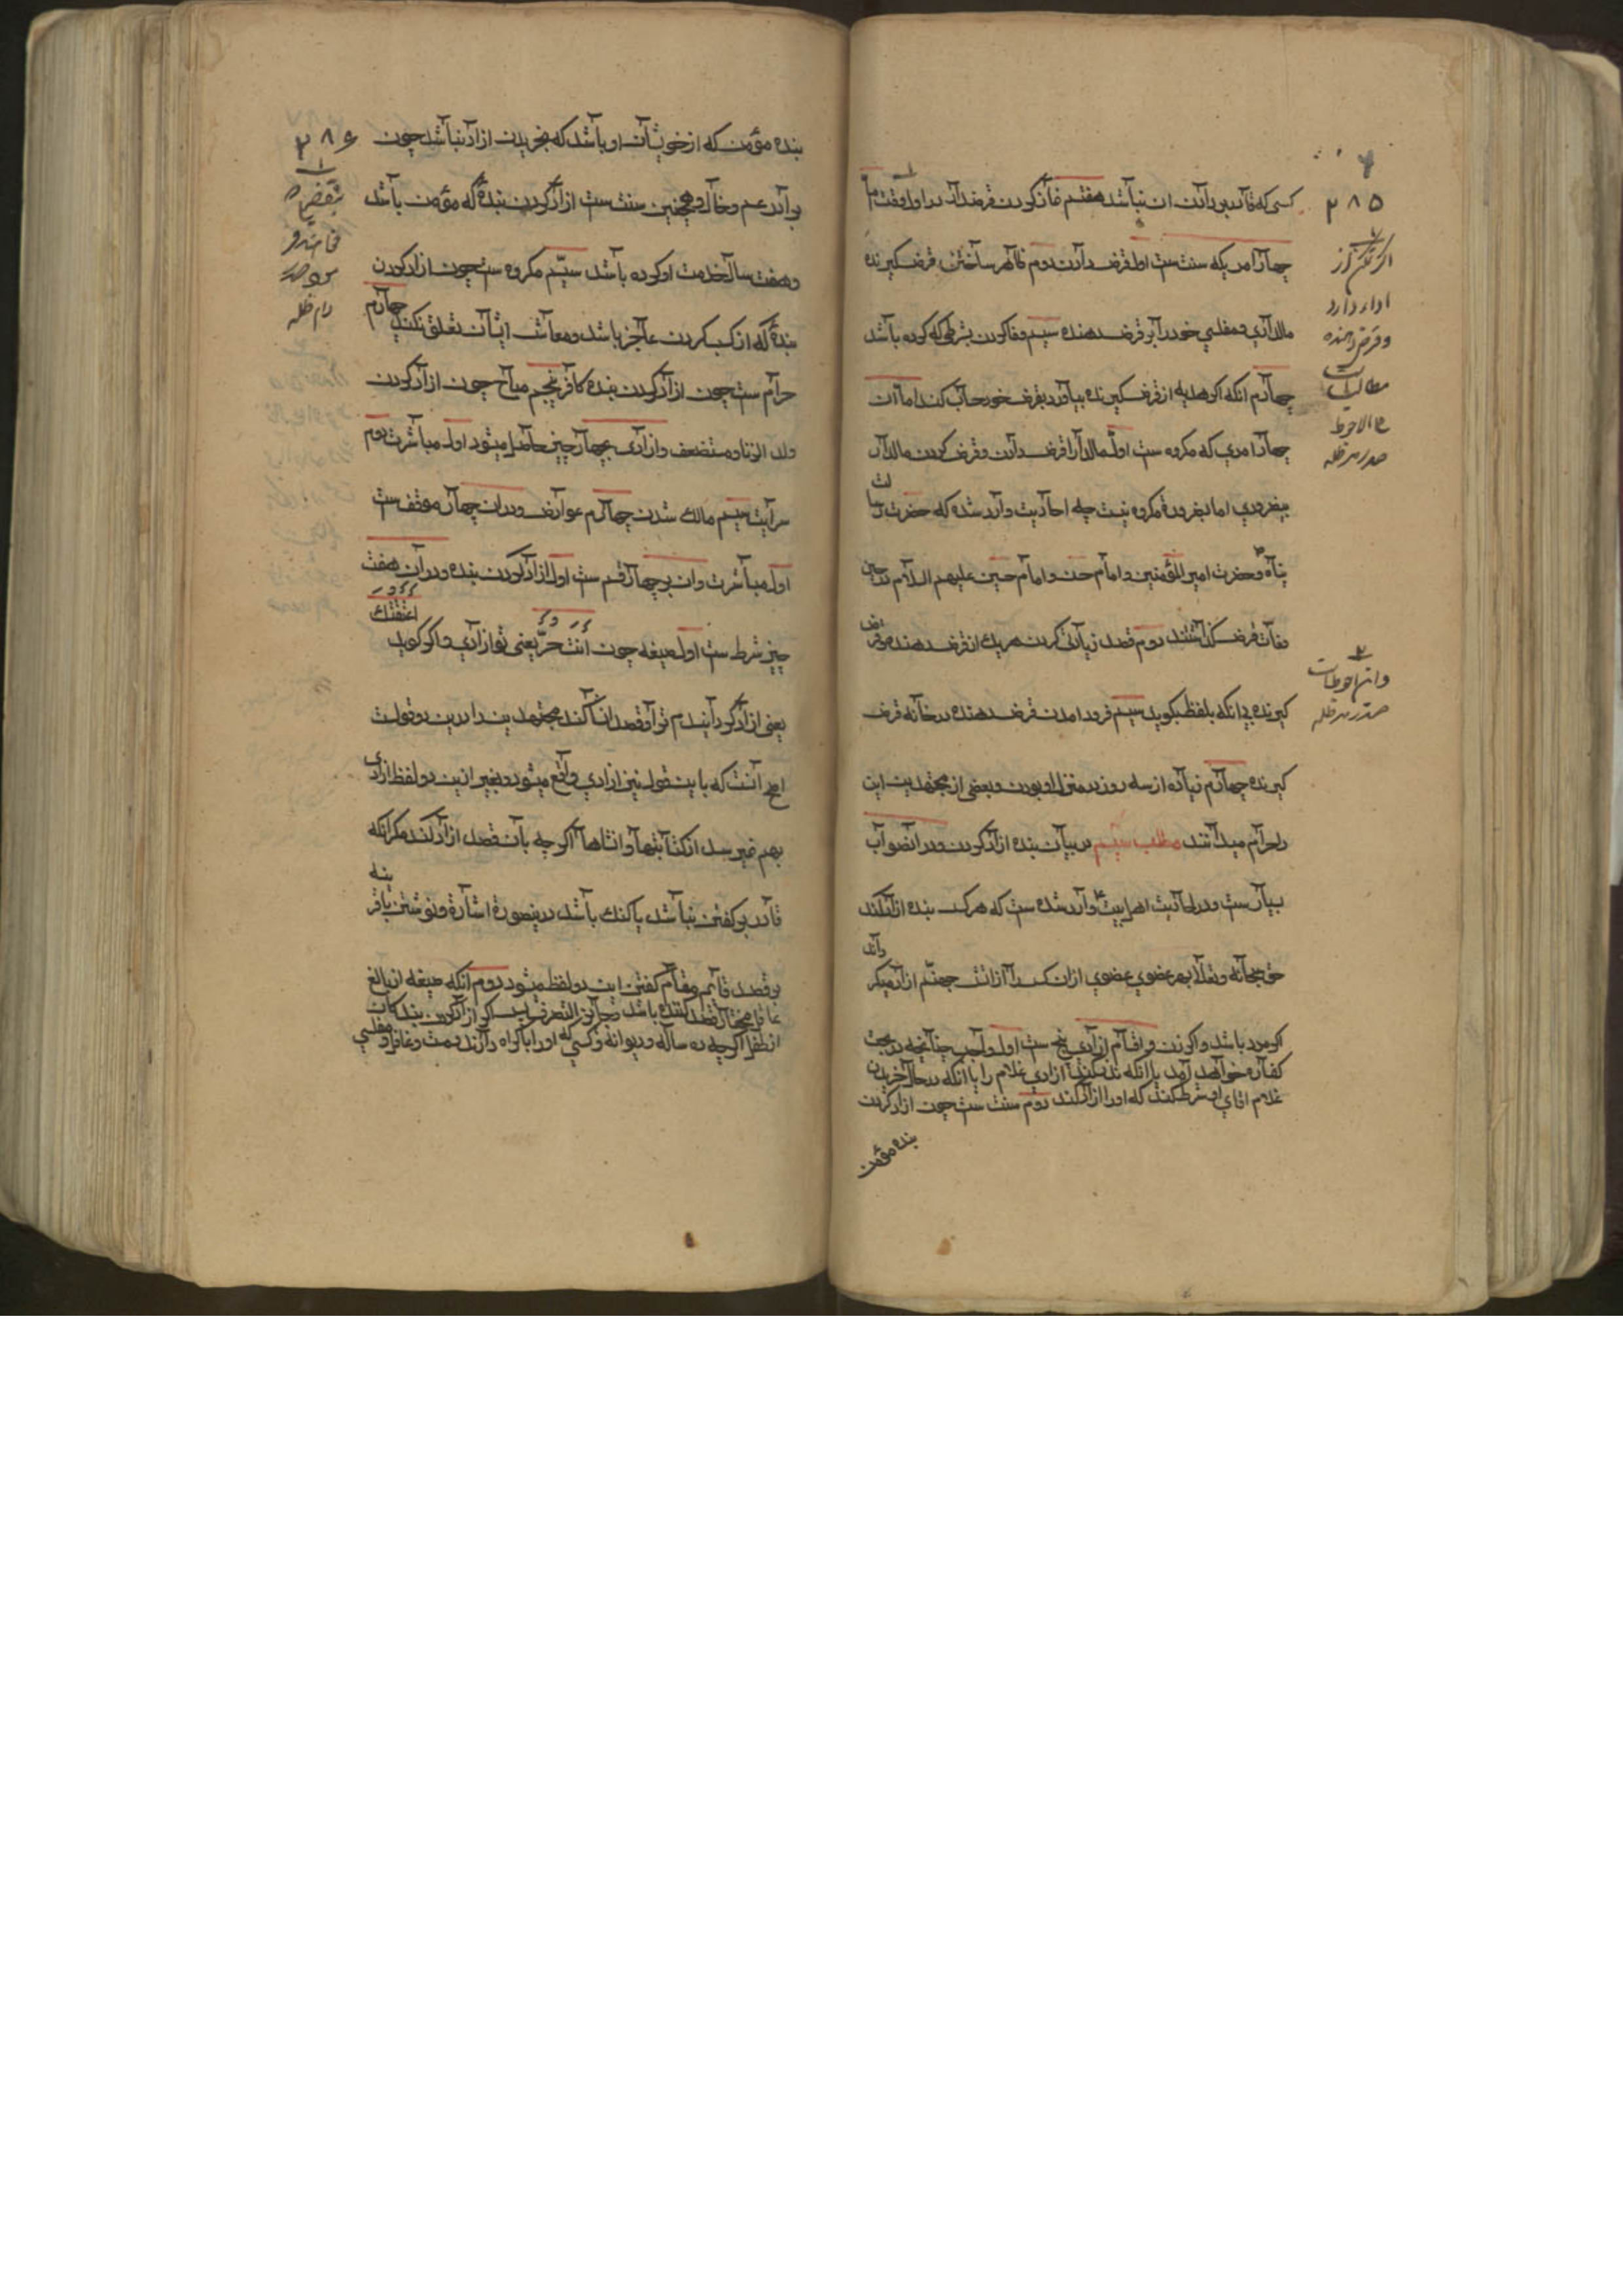 ۲۸۵
کسی که قادر بر دادن ان نباشد هفتم فاذ کردن قرضدار در اول وقت اما
چهار امریکه سنت ست اول قرض دادن دوم ظاهر ساختن قرض کیرنده
مالداری و مفلسی خود را بر قرض دهنده سیم وفا کردن بشرطی که کرده باشد
چهارم انکه اکر هدیه از قرض کیرنده بیاورد بقرض خود حساب کند اما ان
چهار امری که مکروه ست اول مالدار را قرض دادن و قرض کردن مالدار
بیضروری اما بضرورة مکروه نیست چه احادیث وارد شده که حضرت رسالت
پناه و حضرت امیر المؤمنین و امام حسن و امام حسین علیهم السلام در حین
وفات قرض داشتند دوم قصد زیادتی کردن هریك از قرض دهنده و قرض
کیرنده بی انکه بلفظ بکوید سیم فرود امدن قرض دهنده در خانه قرض
کیرنده چهارم زیاده از سه روز در منزل او بودن و بعضی از مجتهدین این
را حرام میدانند مطلب سیم در بیان بنده ازاد کردن و در ان ثواب
بسیار ست و در احادیث اهل بیت وارد شده ست که هر کس بنده ازاد کند
حق سبحانه و تعالی بهر عضوی عضوی از ان کس را از اتش جهنم ازاد میکرداند
اکر مرد باشد و اکر زن و اقسام ازادی پنج ست اول واجب چنانچه در بحث
کفاره خواهد آمد یا انکه نذر کند ازادی غلام را یا انکه در حال خریدن
غلام اقای او شرط کند که او را ازاد کند دوم سنت ست چون ازاد کردن
بنده مؤمن
اکر تمکن از
اداء دارد
و قرض دهنده
مطالب است
علی الاحوط
صدر مد ظله
و این احوط است
صدر مد ظله
۲۸۶
بنده مؤمن که از خویشان او باشد که بخریدن ازاد نباشد چون
برادر و عم و خال و همچنین سنت ست ازاد کردن بنده که مؤمن باشد
و هفت سال خدمت او کرده باشد سیم مکروه ست چون ازاد کردن
بنده که از کسب کردن عاجز باشد و معاش ایشان تعلق نکند چهارم
حرام ست چون ازاد کردن بنده کافر پنجم مباح چون ازاد کردن
ولد الزنا و مستضعف و ازادی بچهار چیز حاصل میشود اول مباشرت دوم
سرایت سیم مالك شدن چهارم عوارض و در ان چهار موقف ست
اول مباشرت و ان بر چهار قسم ست اول ازاد کردن بنده و در ان هفت
چیز شرط ست اول صیغه چون أنت حرّ یعنی تو ازادی و اکر کوید اعتقتك
یعنی ازاد کردانیدم ترا و قصد انشا کند مجتهدین را درین دو قولست
اصح آنست که باین قول نیز ازادی واقع میشود و بغیر ازین دو لفظ ازادی
بهم نمیرسد از کنایتها و اشارها اکر چه بآن قصد ازاد کند مکر انکه
قادر بر کفتن نباشد یا کنك باشد درینصورة اشارة و نوشتن با قرینه
بر قصد قائم مقام کفتن این دو لفظ میشود دوم انکه صیغه از بالغ
عاقل مختار قصد کننده باشد و جائز التصرف پس اکر ازاد کردن بنده کان
از طفل اکر چه ده ساله و دیوانه و کسی که او را باکراه دارند و مست و غافل و مفلسی